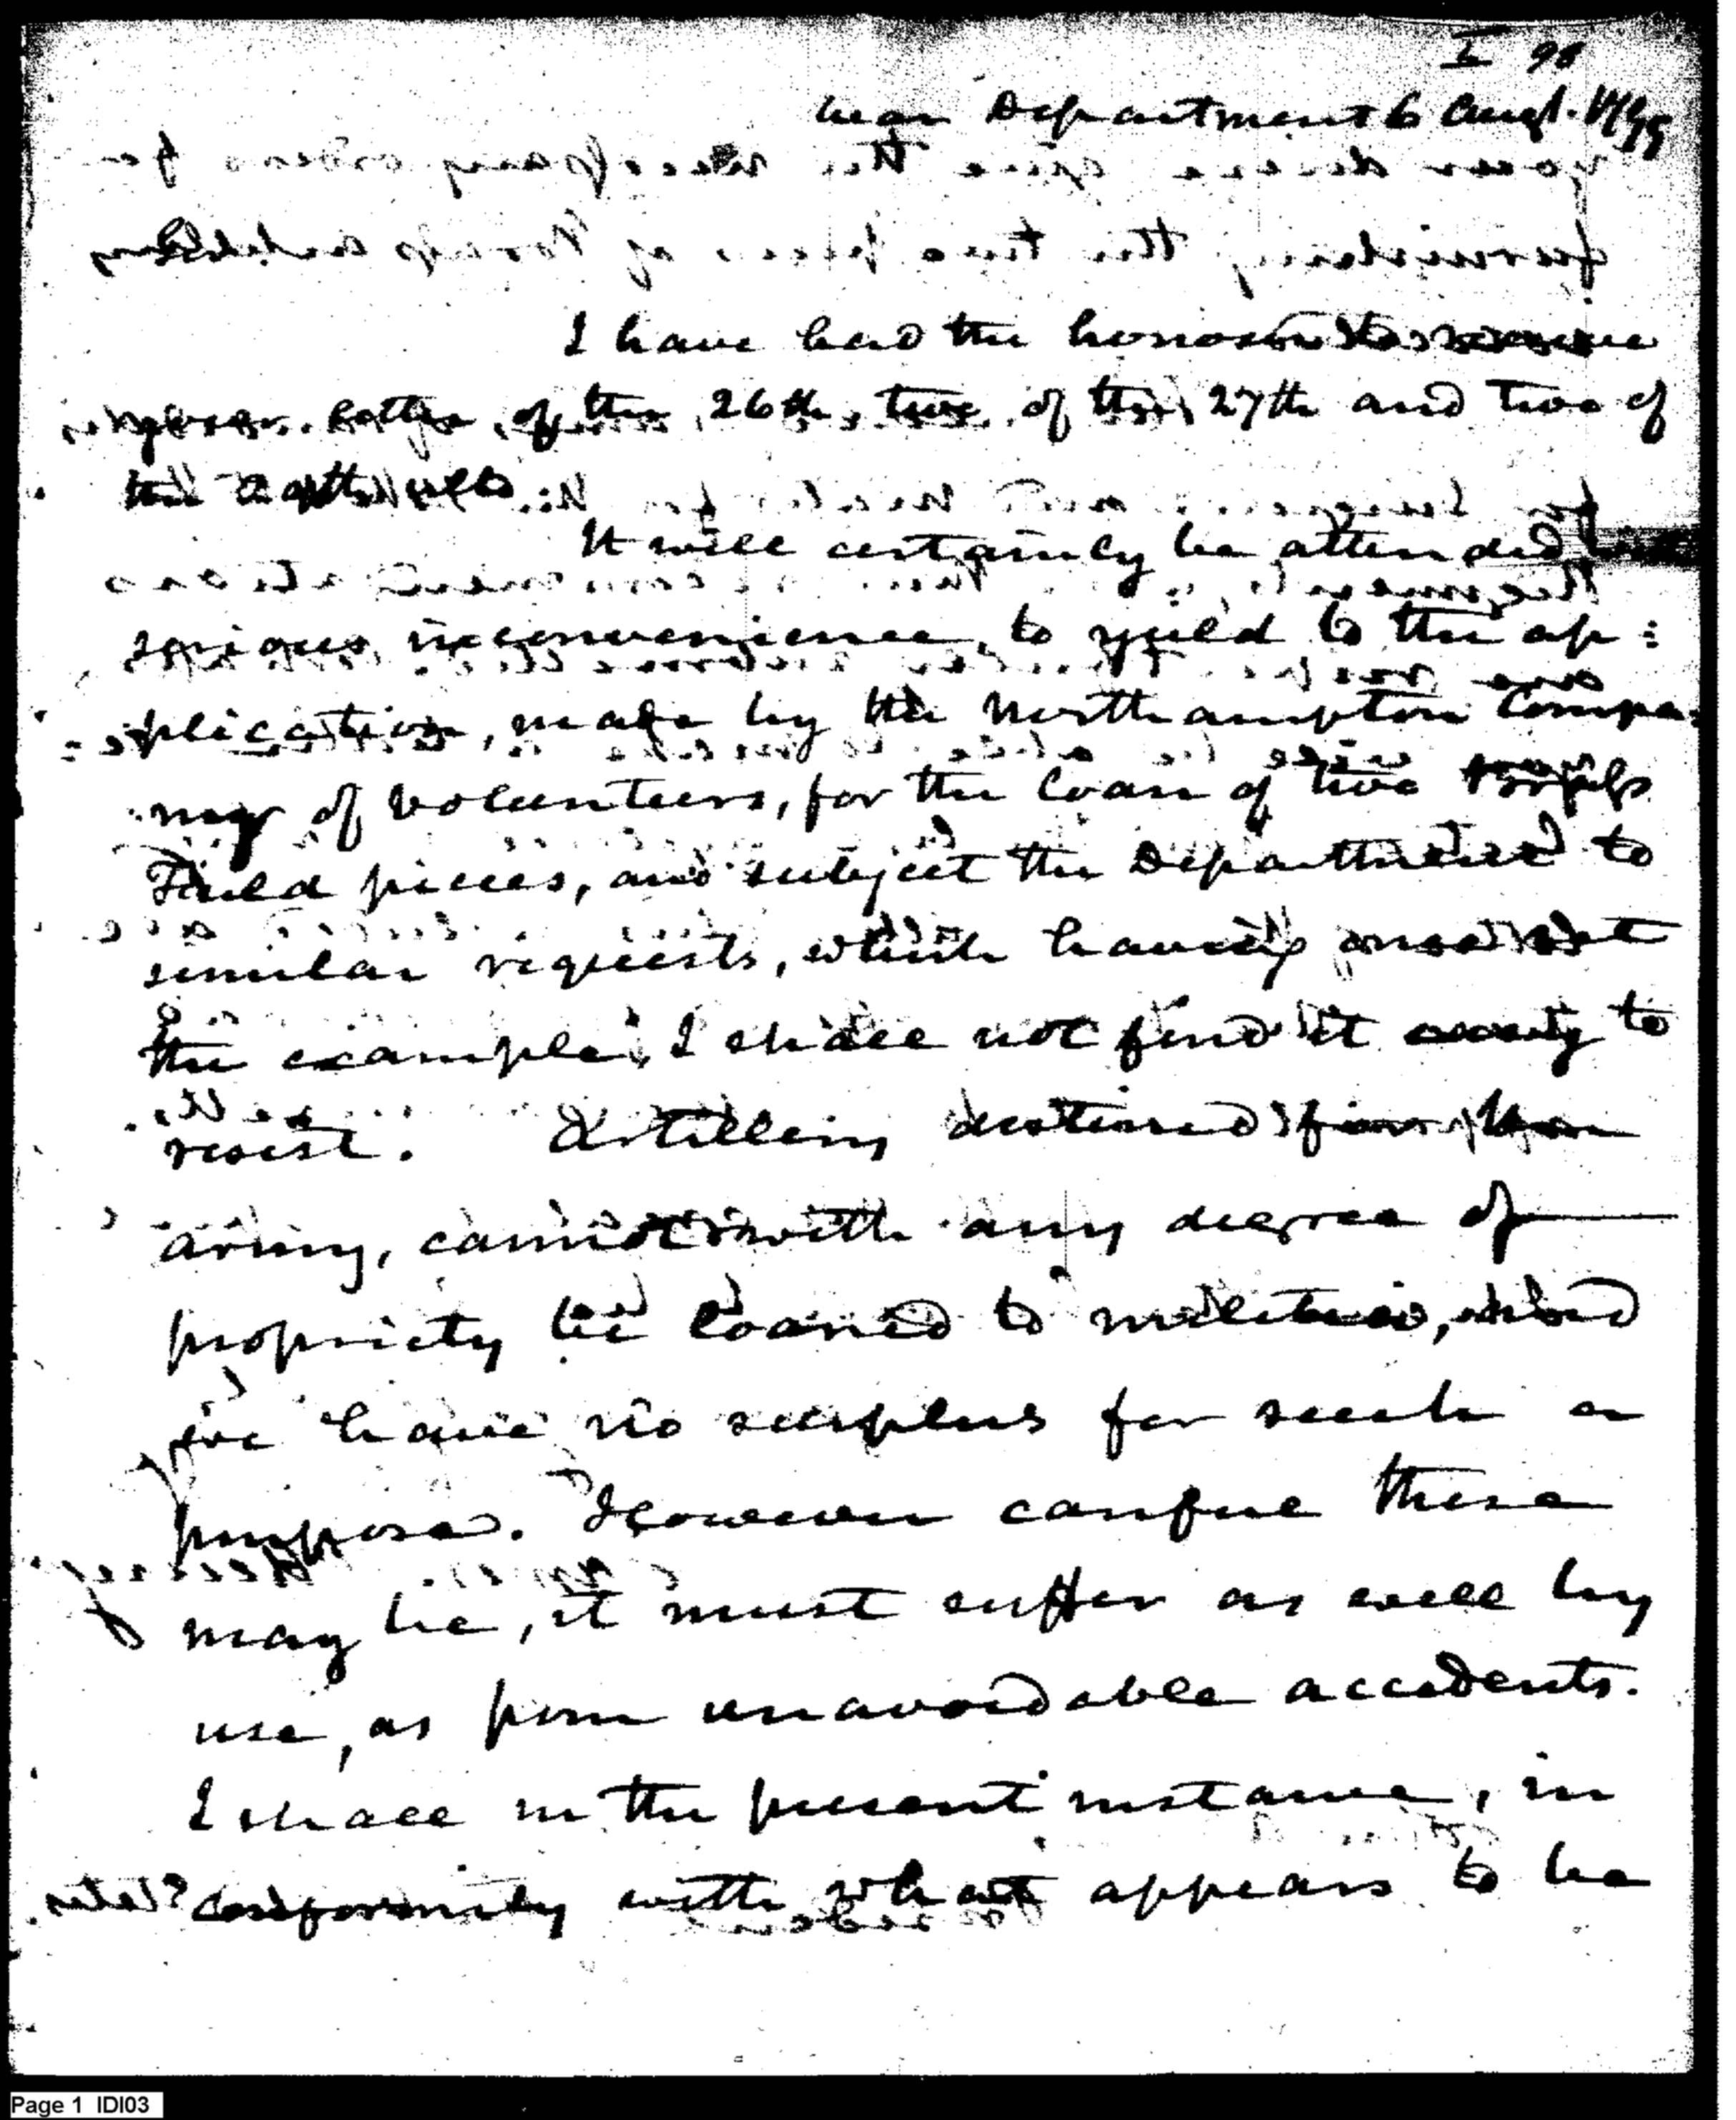 I 98
War Department 6 Augt. 1799
I have had the honor to receive
your letter of the 26th, two of the 27th and two of
the 29th ulto.
It will certainly be attended with
serious inconvenience to yield to the ap:
plication, made by the Northampton Compa:
ny of Volunteers, for the loan of two brass
Field pieces, and subject the Department to
similar requests, which having once set
the example, I shall not find it easy to
resist. Artillery destined for the
army, cannot with any degree of
propriety be loaned to militia, and
we have no surplus for such a
purpose. However careful these
may be, it must suffer as well by
use, as from unavoidable accidents.
I shall in the present instance, in
conformity with what appears to be
Page 1 IDI03